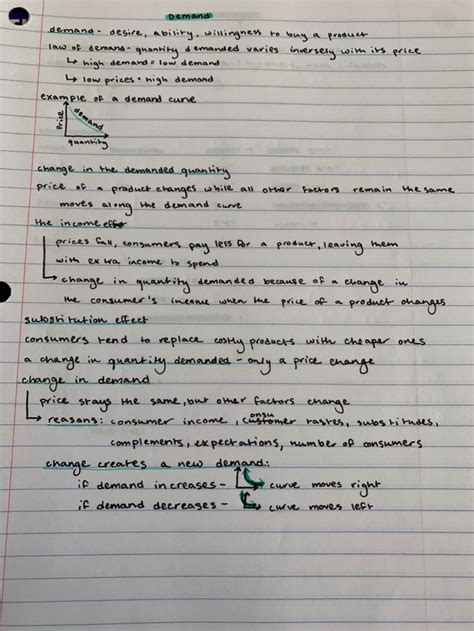 Demand
demand - desire, ability, willingness to buy a product
law of demand - quantity demanded varies inversely with its price
↳ high demand = low demand
↳ low prices = high demand
example of a demand curve
Price
demand
quantity
change in the demanded quantity
price of a product changes while all other factors remain the same
moves along the demand curve
the income
prices fall, consumers pay less for a product, leaving them
with extra income to spend
change in quantity demanded because of a change in
the consumer's income when the price of a product changes
substitution effect
consumers tend to replace costly products with cheaper ones
a change in quantity demanded - only a price change
change in demand
price stays the same, but other factors change
reasons: consumer income, tastes, substitudes,
complements, expectations, number of consumers
change creates a new demand:
if demand increases - curve moves right
if demand decreases - curve moves left